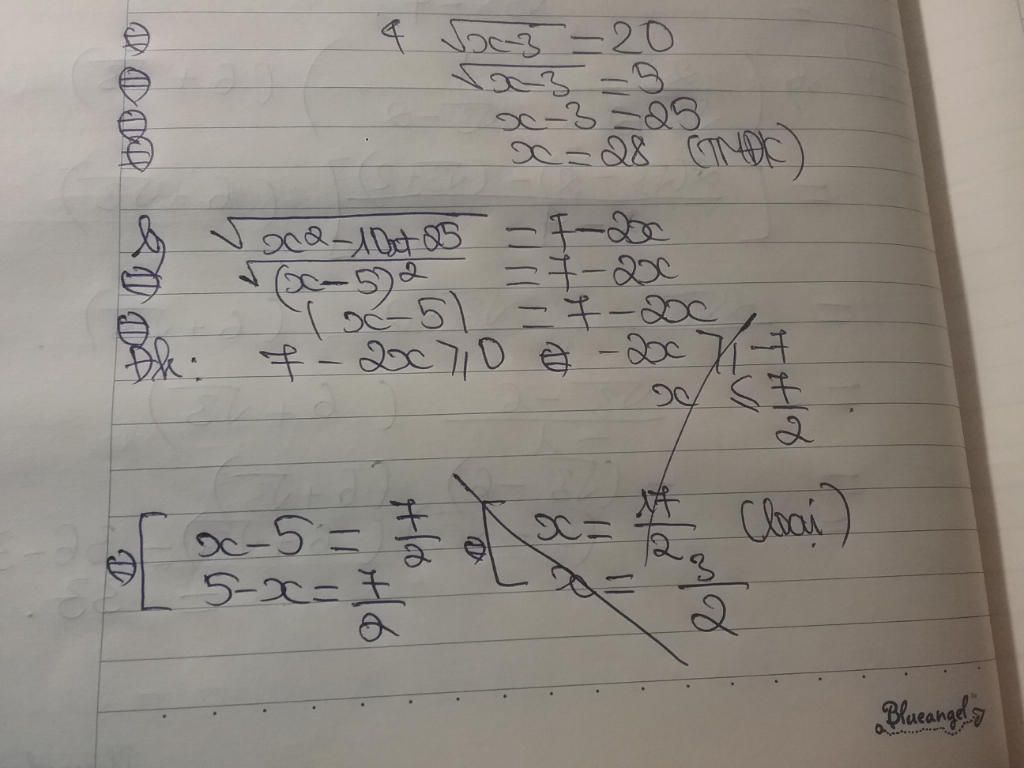 ⇔ 4 √(x-3) = 20
⇔ √(x-3) = 5
⇔ x-3 = 25
⇔ x = 28 (TMĐK)
b) √(x² - 10x + 25) = 7 - 2x
⇔ √((x-5)²) = 7 - 2x
⇔ |x-5| = 7 - 2x
Đk: 7 - 2x ≥ 0 ⇔ -2x ≥ -7
x ≤ 7/2
⇔ [ x-5 = 7/2 ⇔ [ x = 17/2 (loại)
5-x = 7/2 x = 3/2
Blueangel